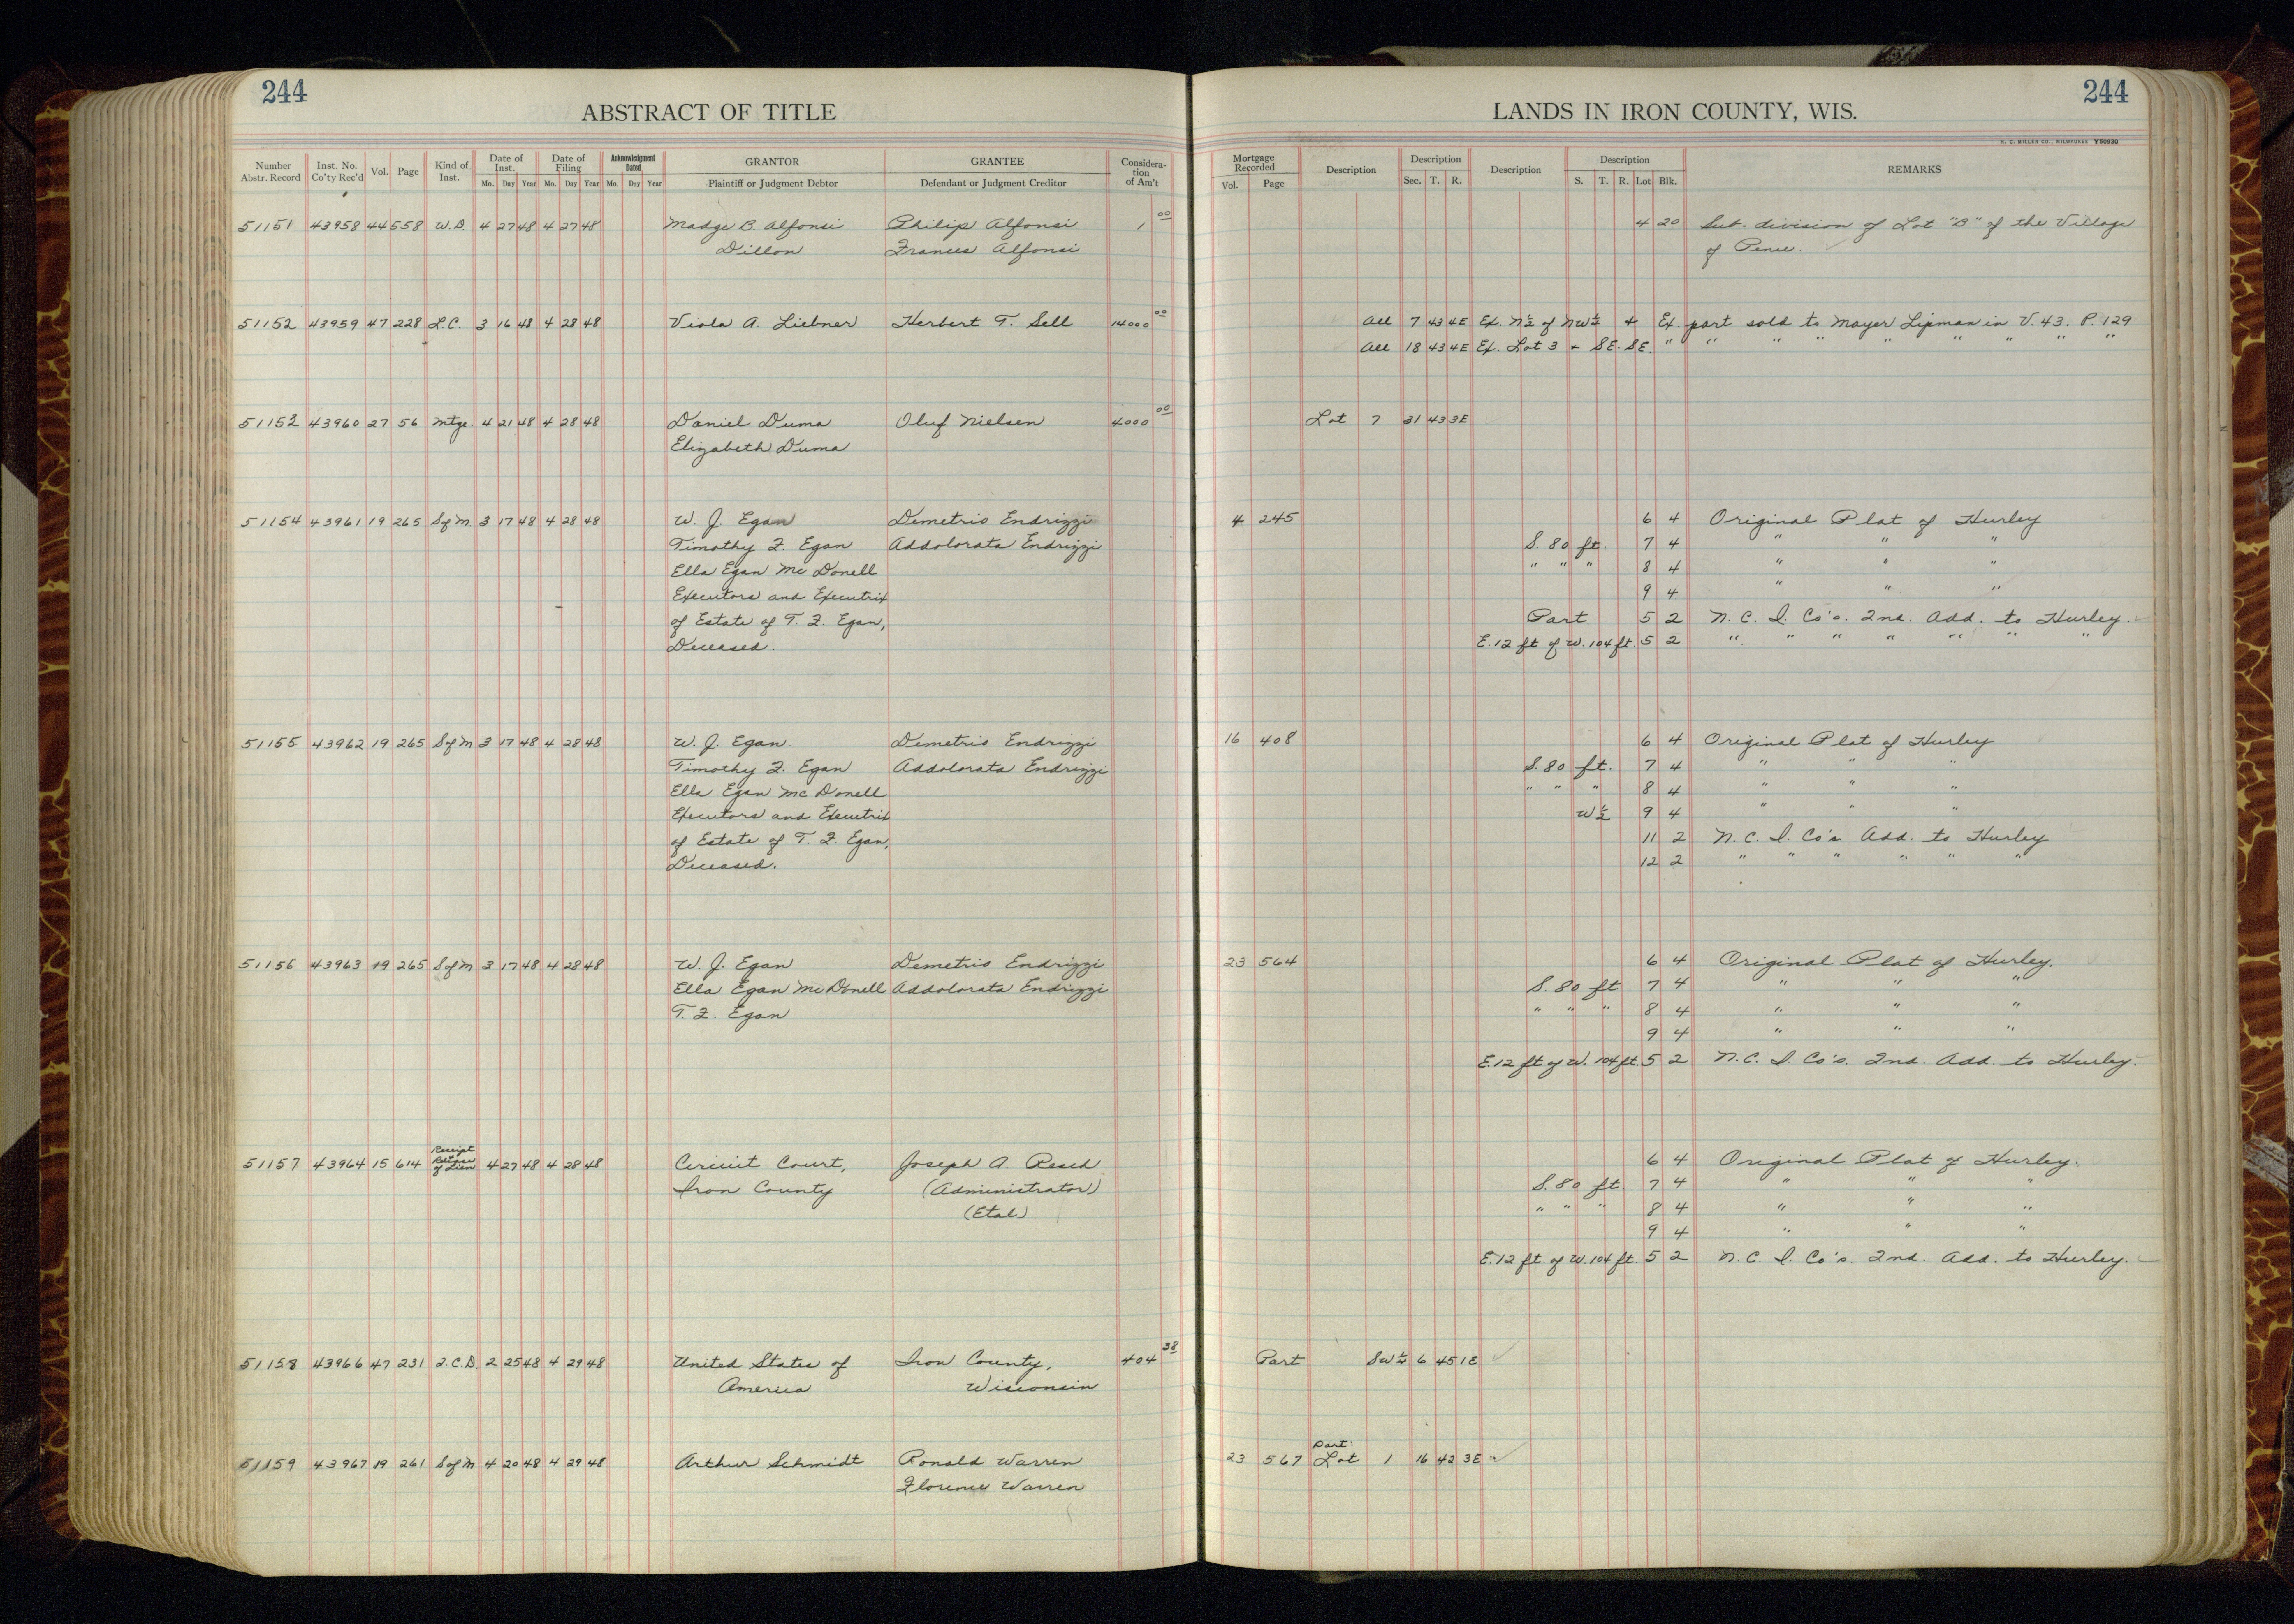 244
ABSTRACT OF TITLE
Number Abstr. Record Inst. No. Co'ty Rec'd Vol. Page Kind of Inst. Date of Inst. Mo. Day Year Date of Filing Mo. Day Year Acknowledgment Dated Mo. Day Year GRANTOR Plaintiff or Judgment Debtor GRANTEE Defendant or Judgment Creditor Considera-tion of Am't
51151 43958 44 558 W.D. 4 27 48 4 27 48 Madge B. Alfonsi Philip Alfonsi 1 00
Dillon Frances Alfonsi
51152 43959 47 228 L.C. 3 16 48 4 28 48 Viola A. Liebner Herbert T. Sell 14000 00
51153 43960 27 56 Mtge. 4 21 48 4 28 48 Daniel Duma Oluf Nielsen 4000 00
Elizabeth Duma
51154 43961 19 265 S of M 3 17 48 4 28 48 W. J. Egan Demetrio Endrizzi
Timothy F. Egan Addolorata Endrizzi
Ella Egan McDonell
Executors and Executrix
of Estate of T. F. Egan,
Deceased.
51155 43962 19 265 S of M 3 17 48 4 28 48 W. J. Egan Demetrio Endrizzi
Timothy F. Egan Addolorata Endrizzi
Ella Egan McDonell
Executors and Executrix
of Estate of T. F. Egan,
Deceased.
51156 43963 19 265 S of M 3 17 48 4 28 48 W. J. Egan Demetrio Endrizzi
Ella Egan McDonell Addolorata Endrizzi
T. F. Egan
Receipt
51157 43964 15 614 of Lien 4 27 48 4 28 48 Circuit Court, Joseph A. Resch
Iron County (Administrator)
(Etal)
51158 43966 47 231 Q.C.D. 2 25 48 4 29 48 United States of Iron County, 404 38
America Wisconsin
51159 43967 19 261 S of M 4 20 48 4 29 48 Arthur Schmidt Ronald Warren
Florence Warren
244
LANDS IN IRON COUNTY, WIS.
H. C. MILLER CO., MILWAUKEE Y50930
Mortgage Recorded Vol. Page Description Description Sec. T. R. Description Description S. T. R. Lot Blk. REMARKS
4 20 Sub-division of Lot "B" of the Village
of Pence.
All 7 43 4E Ex. N½ of NW¼ + Ex. part sold to Mayer Lipman in V. 43. P. 129
All 18 43 4E Ex. Lot 3 + SE-SE. " " " " " " " " "
Lot 7 31 43 3E
4 245 6 4 Original Plat of Hurley
S. 80 ft. 7 4 " " "
" " " 8 4 " " "
9 4 " " "
Part 5 2 N. C. I. Co's. 2nd. Add. to Hurley.
E. 12 ft of W. 104 ft. 5 2 " " " " " " "
16 408 6 4 Original Plat of Hurley
S. 80 ft. 7 4 " " "
" " " 8 4 " " "
W½ 9 4 " " "
11 2 N. C. I. Co's Add. to Hurley
12 2 " " " " " "
23 564 6 4 Original Plat of Hurley.
S. 80 ft 7 4 " " "
" " " 8 4 " " "
9 4 " " "
E. 12 ft of W. 104 ft. 5 2 N. C. I. Co's. 2nd. Add. to Hurley.
6 4 Original Plat of Hurley.
S. 80 ft 7 4 " " "
" " " 8 4 " " "
9 4 " " "
E. 12 ft. of W. 104 ft. 5 2 N. C. I. Co's. 2nd. Add. to Hurley.
Part SW¼ 6 45 1E
Part:
23 567 Lot 1 16 42 3E